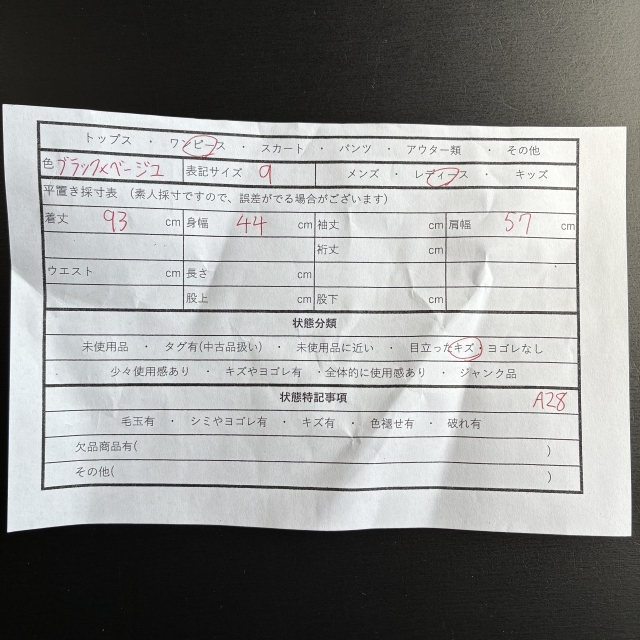 トップス ・ ワンピース ・ スカート ・ パンツ ・ アウター類 ・ その他
色 ブラック×ベージュ 表記サイズ 9 メンズ ・ レディース ・ キッズ
平置き採寸表 （素人採寸ですので、誤差がでる場合がございます）
着丈 93 cm 身幅 44 cm 袖丈 cm 肩幅 57 cm
裄丈 cm
ウエスト cm 長さ cm
股上 cm 股下 cm
状態分類
未使用品 ・ タグ有(中古品扱い) ・ 未使用品に近い ・ 目立ったキズ・ヨゴレなし
少々使用感あり ・ キズやヨゴレ有 ・全体的に使用感あり ・ ジャンク品
状態特記事項 A28
毛玉有 ・ シミやヨゴレ有 ・ キズ有 ・ 色褪せ有 ・ 破れ有
欠品商品有( )
その他( )